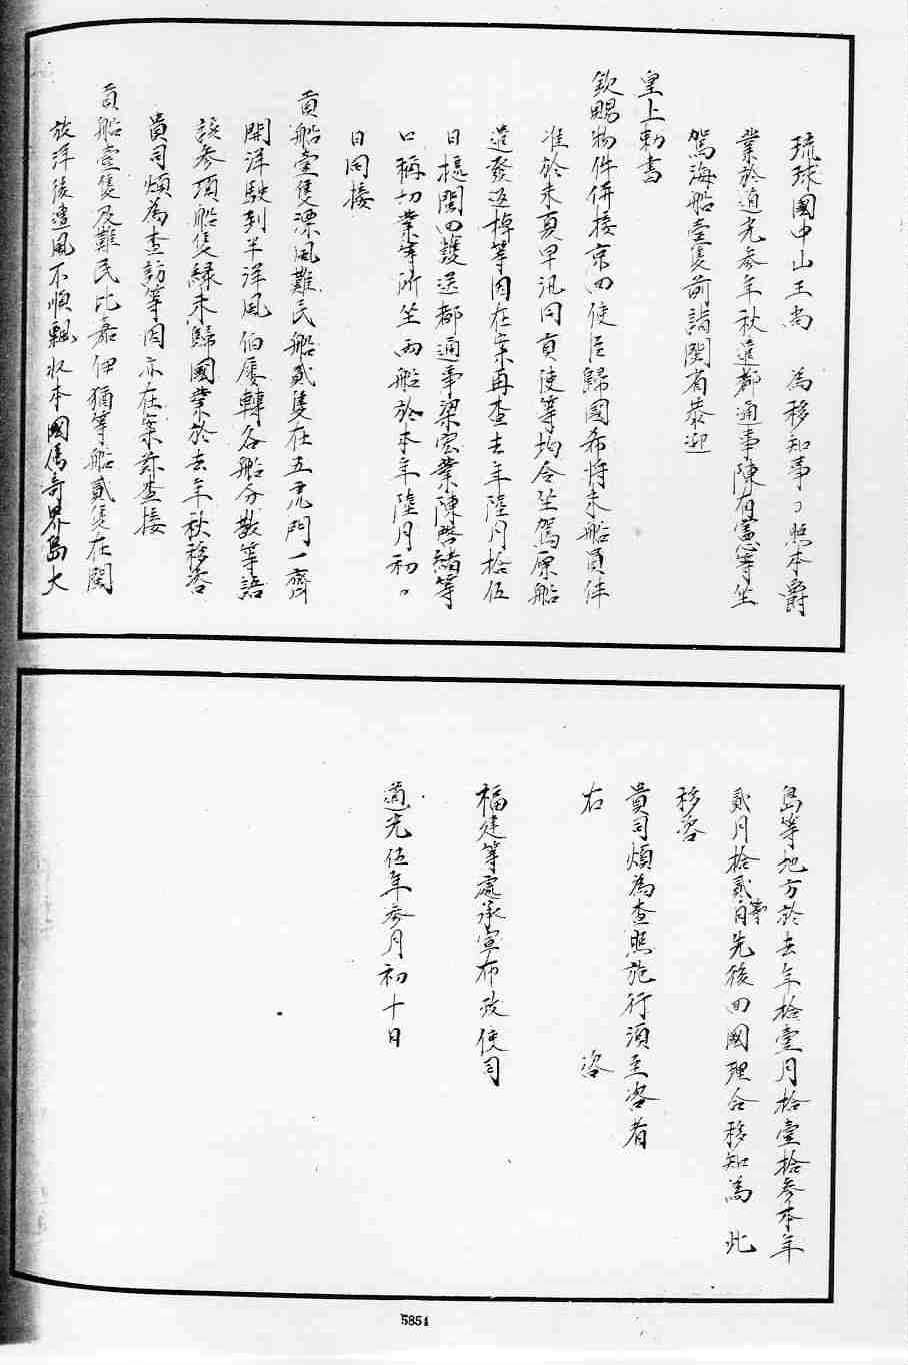 琉球國中山王尚　為移知事照本爵
業於道光參年秋遣都通事陳有憲等坐
駕海船壹隻前詣閩省恭迎
皇上勅書
欽賜物件併接京回使臣歸國希將來船員伴
准於來夏早汛同貢使等均令坐駕原船
遣發返棹等因在案再查去年陸月拾伍
日據閩回護送都通事梁宏業陳啓緒等
口稱切業等所坐兩船於本年陸月初
日同接
貢船壹隻漂風難民船貳隻在五虎門一齊
開洋駛到半洋風伯屢轉各船分散等語
該參項船隻緣未歸國業於去年秋移咨
貴司煩為查訪等因亦在案茲查接
貢船壹隻及難民比嘉伊猶等船貳隻在閩
放洋後遭風不順飄收本國屬奇界島大
島等地方於去年拾壹月拾壹拾參本年
貳月拾貳等日先後回國理合移知為此
移咨
貴司煩為查照施行須至咨者
右　咨
福建等處承宣布政使司
道光伍年參月初十日
5854